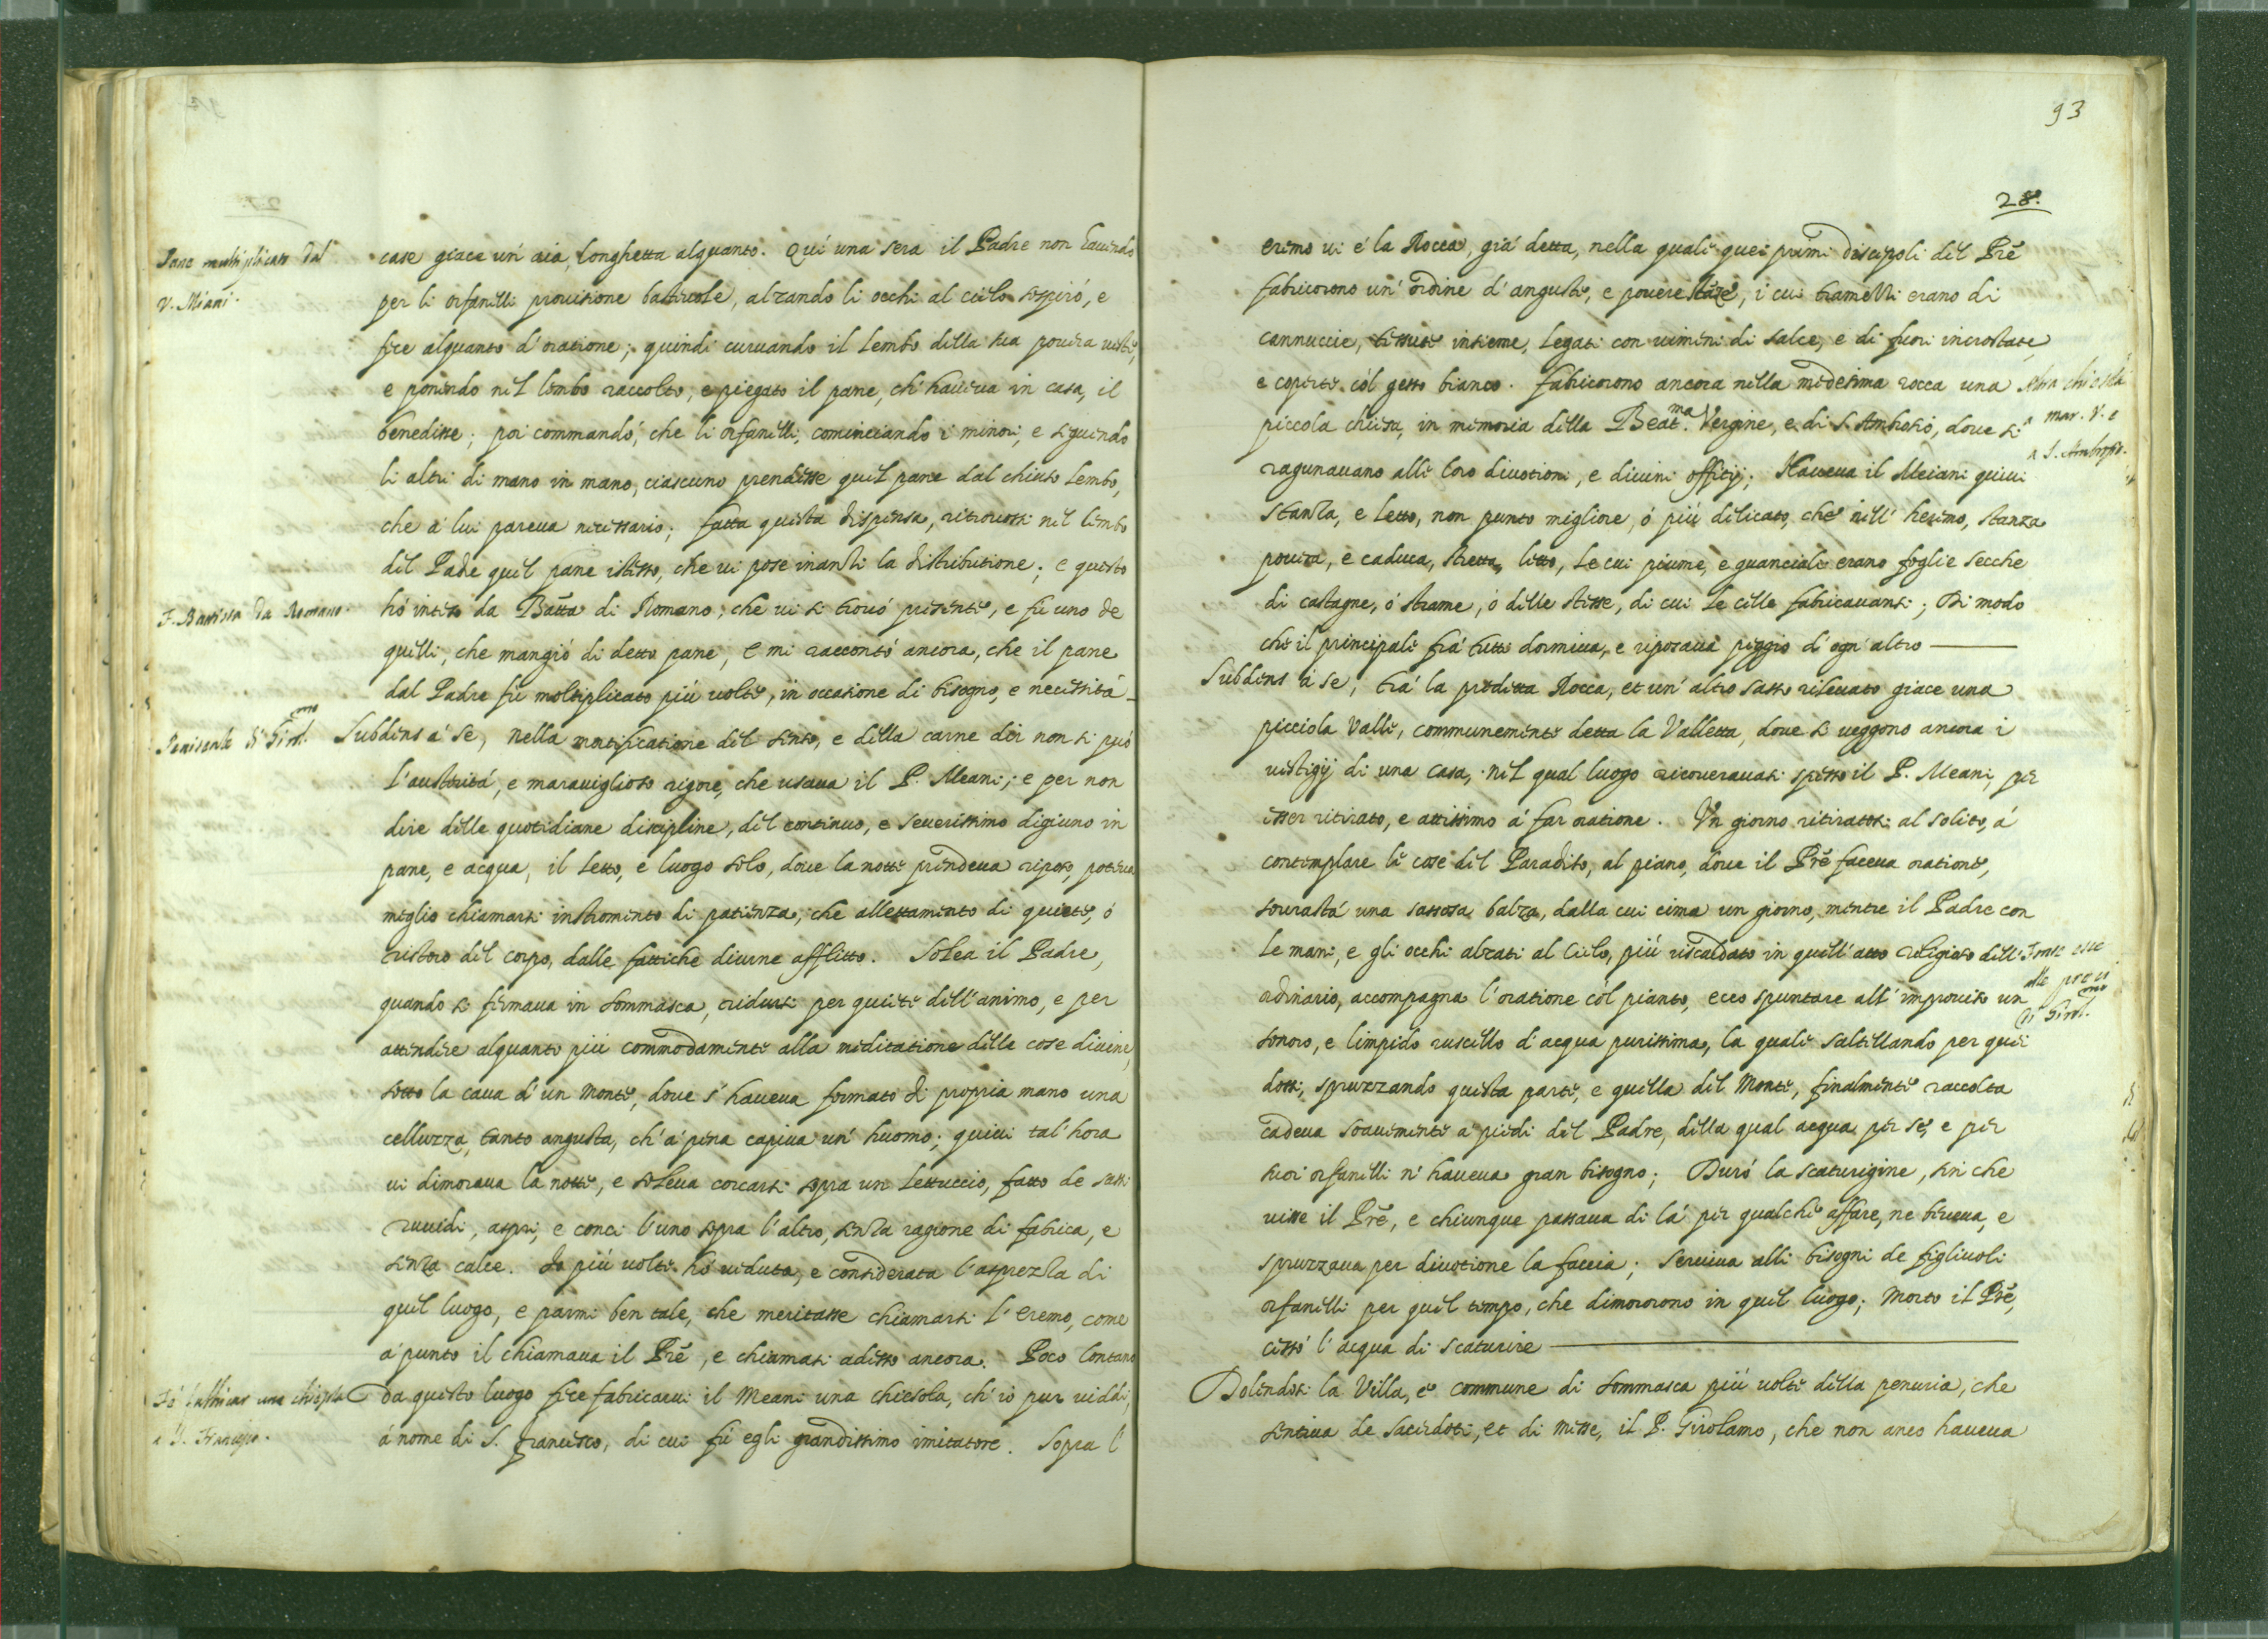 Pane multiplicato dal
V. Miani.
case giace un' aia, longhetta alquanto. Quí una sera il Padre non hauendo
per li orfanelli prouisione basteuole, alzando li occhi al cielo sospiró, e
fece alquanto d' oratione; quindi curuando il lembo della sua pouera ueste,
e ponendo nel lembo raccolto, e piegato il pane, ch' haueua in casa, il
benedisse; poi commandó, che li orfanelli, cominciando i minori, e seguendo
li altri di mano in mano, ciascuno prendesse quel pane dal chiuso lembo,
che á lui pareua necessario; fatta questa dispensa, ritrouossi nel lembo
del Padre quel pane istesso, che ui pose inanti la distributione; e questo
F. Battista da Romano.
hó inteso da Batta di Romano; che ui si trouó presente, e fú uno de
quelli, che mangió di detto pane, e mi raccontó ancora, che il pane
dal Padre fú moltiplicato piú uolte, in occasione di bisogno, e necessitá
Penitenze di Girol.mo
Subdens á se, nella mortificatione del senso, e della carne dir non si puó
l' austeritá, e marauiglioso rigore, che usaua il P. Meani; e per non
dire delle quotidiane discipline, del continuo, e seuerissimo digiuno in
pane, e acqua, il letto, e luogo solo, doue la notte prendeua riposo, poteua
meglio chiamarsi instromento di patienza, che allettamento di quiete, ó
ristoro del corpo, dalle fattiche diurne afflitto. Solea il Padre,
quando si fermaua in Sommasca, ridursi per quiete dell' animo, e per
attendere alquanto piú commodamente alla meditatione delle cose diuine,
sotto la caua d' un Monte, doue s' haueua formato di propria mano una
celluzza, tanto angusta, ch' á pena capiua un' huomo; quiui tal' hora
ui dimoraua la notte, e soleua corcarsi sopra un lettuccio, fatto de sassi
ruuidi, aspri, e conci l' uno sopra l' altro, senza ragione di fabrica, e
senza calce. Io piú uolte hó ueduta, e considerata l' asprezza di
quel luogo, e parmi ben tale, che meritasse chiamarsi l' eremo, come
á punto il chiamaua il Prē, e chiamasi adesso ancora. Poco lontano
Fá fabbricar una chiesola
a S. Francesco.
da questo luogo fece fabricarui il Meani una chiesola, ch' io pur uiddi,
á nome di S. Francesco, di cui fú egli grandissimo imitatore. Sopra l'
93
28.
eremo ui é la Rocca, giá detta, nella quale quei primi discepoli del Prē
fabricorono un' ordine d' anguste, e pouere stāze, i cui tramelli erano di
cannuccie, tessute insieme, legati con uimini di salce, e di fuori incrostate,
e coperte cól gesso bianco. Fabricorono ancora nella medesima rocca una
Altra chiesola
a Mar. V. e
a S. Ambrogio.
piccola chiesa, in memoria della Beat.ma Vergine, e di S. Ambrosio, doue si
ragunauano alle loro diuotioni, e diuini offitij; Haueua il Meiani quiui
stanza, e letto, non punto migliore, ó piú dilicato, che nell' heremo, stanza
pouera, e caduca, stretta, letto, le cui piume, e guanciale erano foglie secche
di castagne, ó strame, ó delle stesse, di cui le celle fabricauansi; Di modo
che il principale frá tutti dormiua, e riposaua peggio d' ogn' altro
Subdens á se; trá la predetta Rocca, et un' altro sasso rileuato giace una
picciola Valle, communemente detta la Valletta, doue si ueggono ancora i
uestigij di una casa, nel qual luogo ricouerauasi spesso il P. Meani, per
esser ritirato, e attissimo á far oratione. Vn giorno ritiratosi al solito, á
contemplare le cose del Paradiso, al piano, doue il Prē faceua oratione,
sourastá una sassosa balza, dalla cui cima un giorno, mentre il Padre con
le mani, e gli occhi alzati al Cielo, piú riscaldato in quell' atto religioso dell'
Fonte esce
alle preci
di Girol.mo
ordinario, accompagna l' oratione cól pianto, ecco spuntare all' improuiso un
sonoro, e limpido ruscello d' acqua purissima, la quale saltellando per quei
dossi, spruzzando questa parte, e quella del Monte, finalmente raccolta
cadeua soauemente a' piedi del Padre, della qual acqua per se, e per
suoi orfanelli n' haueua gran bisogno; Duró la scaturigine, sin che
uisse il Prē, e chiunque passaua di lá per qualche affare, ne beueua, e
spruzzaua per diuotione la faccia; Seruiua alli bisogni de figliuoli
orfanelli per quel tempo, che dimororono in quel luogo; Morto il Prē,
cessó l' acqua di scaturire
Dolendosi la Villa, e commune di Sommasca piú uolte della penuria, che
sentiua de Sacerdoti, et di Messe, il P. Girolamo, che non anco haueua